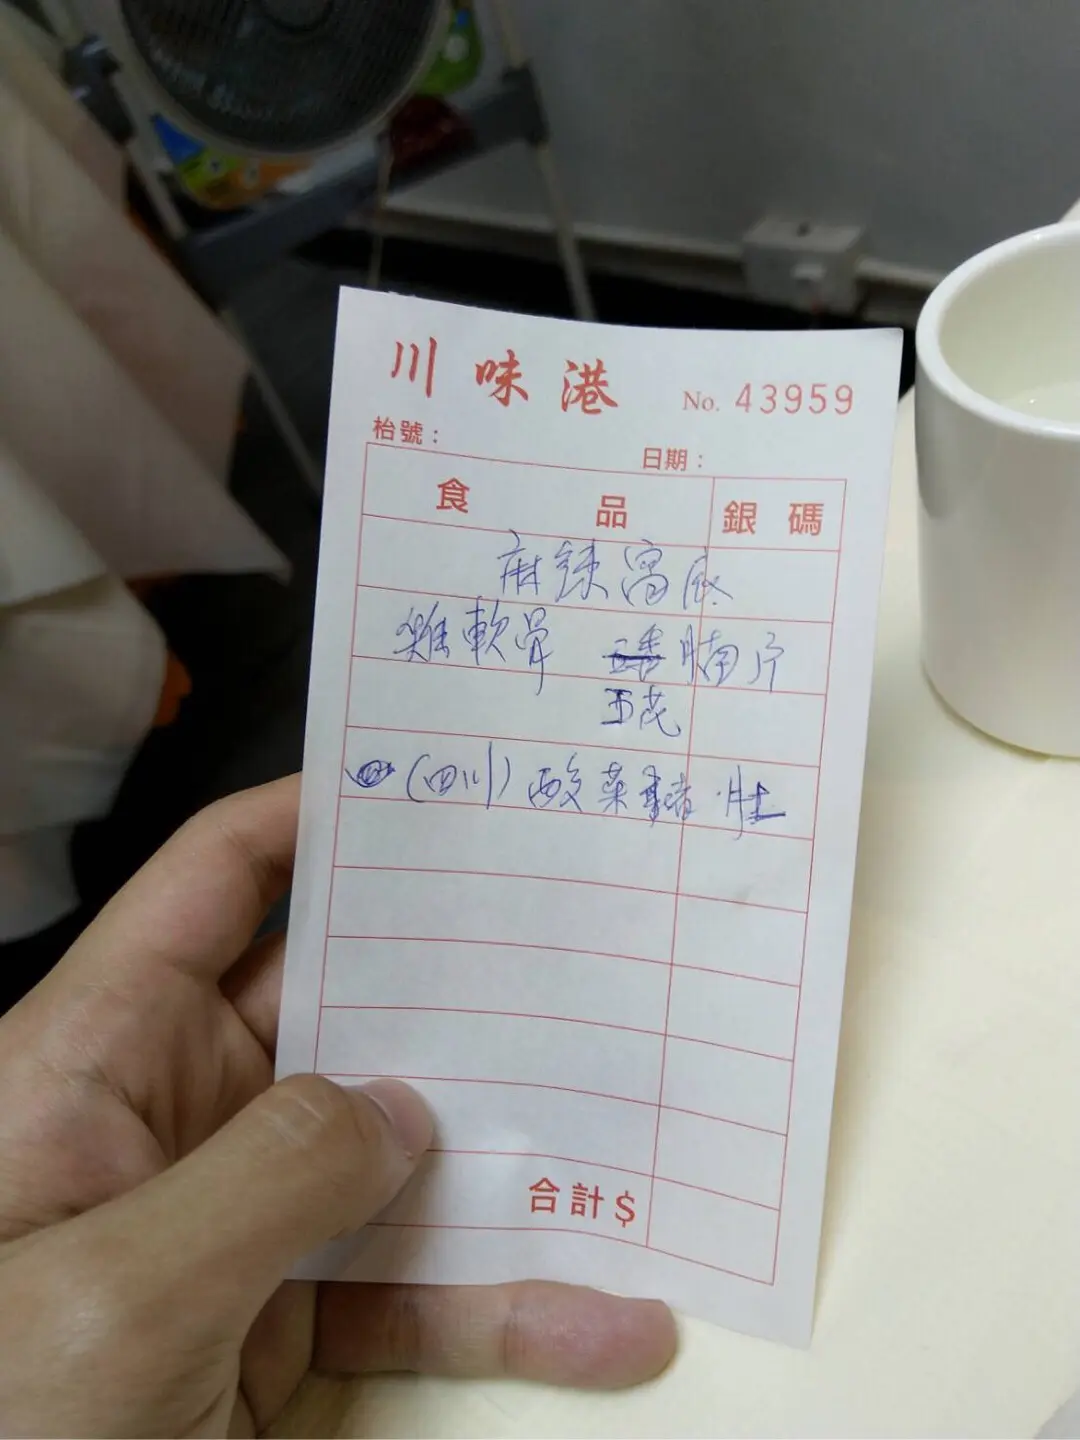 川味港 No. 43959
枱號：
日期：
食品 銀碼
麻辣窩底
雞軟骨 腩片
(四川) 酸菜豬肚
合計$